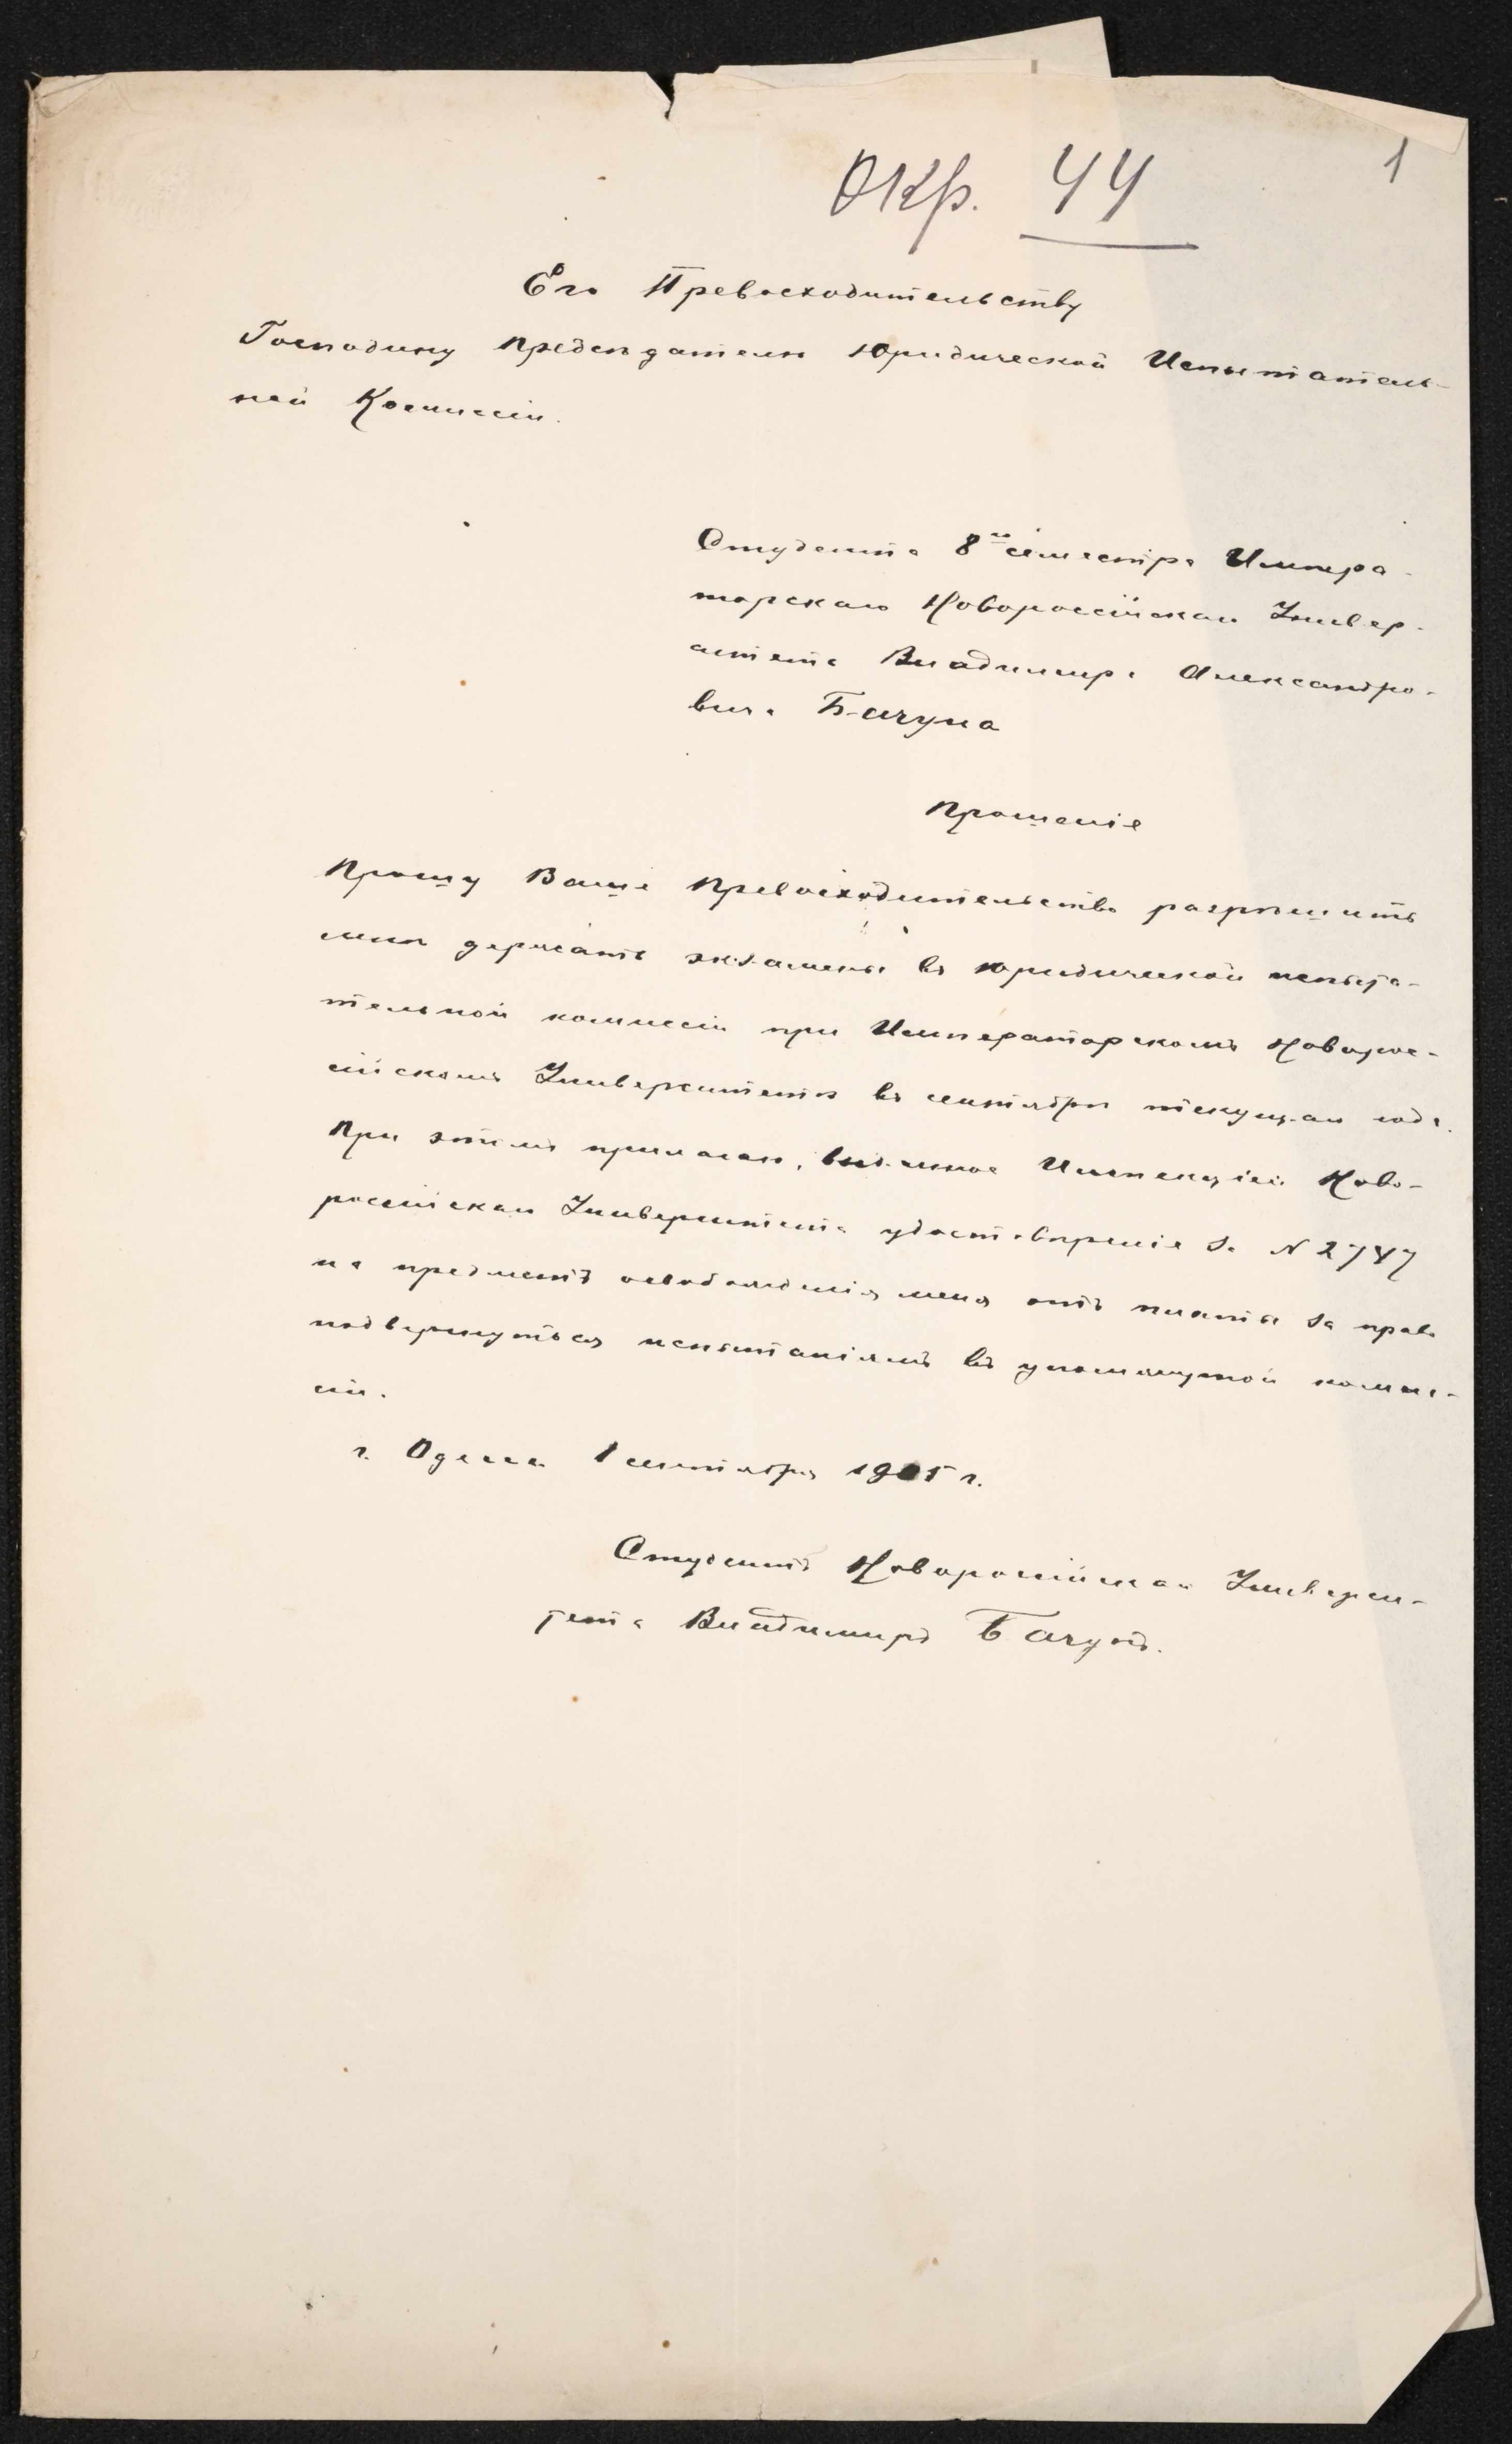 Окр. 44
1
Его Превосходительству
Господину Председателю Юридической Испытатель-
ной Коммиссіи.
Студента 8го семестра Импера-
торскаго Новороссійскаго Универ-
ситета Владимира Александро-
вича Бачуна
Прошеніе
Прошу Ваше Превосходительство разрѣшить
мнѣ держать экзамены въ юридической испыта-
тельной комиссіи при Императорскомъ Новорос-
сійскомъ Университетѣ въ сентябрѣ текущаго года.
При этомъ прилагаю, выданное Инспекціей Ново-
россійскаго Университета удостовѣреніе за N 2747
на предметъ освобожденія меня отъ платы за право
подвергнуться испытаніямъ въ упомянутой комис-
сіи.
г. Одесса 1 сентября 1905 г.
Студентъ Новороссійскаго Универси-
тета Владимиръ Бачунъ.